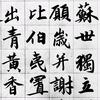 蘇世獨立
願歲并謝
比伯夷置
出青黃香